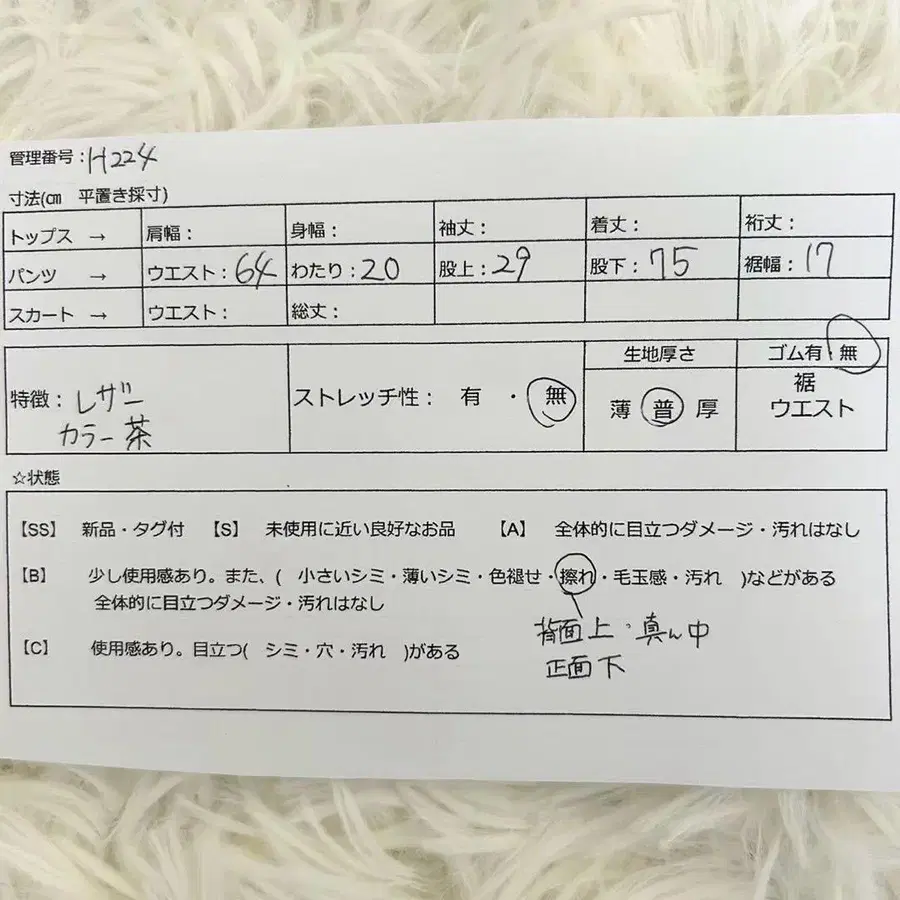 管理番号：H224
寸法(㎝ 平置き採寸)
トップス → 肩幅： 身幅： 袖丈： 着丈： 裄丈：
パンツ → ウエスト：64 わたり：20 股上：29 股下：75 裾幅：17
スカート → ウエスト： 総丈：
特徴：レザー
カラー茶
ストレッチ性： 有 ・ 無
生地厚さ
薄 普 厚
ゴム有・無
裾
ウエスト
☆状態
【SS】 新品・タグ付 【S】 未使用に近い良好なお品 【A】 全体的に目立つダメージ・汚れはなし
【B】 少し使用感あり。また、( 小さいシミ・薄いシミ・色褪せ・擦れ・毛玉感・汚れ )などがある
全体的に目立つダメージ・汚れはなし
背面上・真ん中
正面下
【C】 使用感あり。目立つ( シミ・穴・汚れ )がある